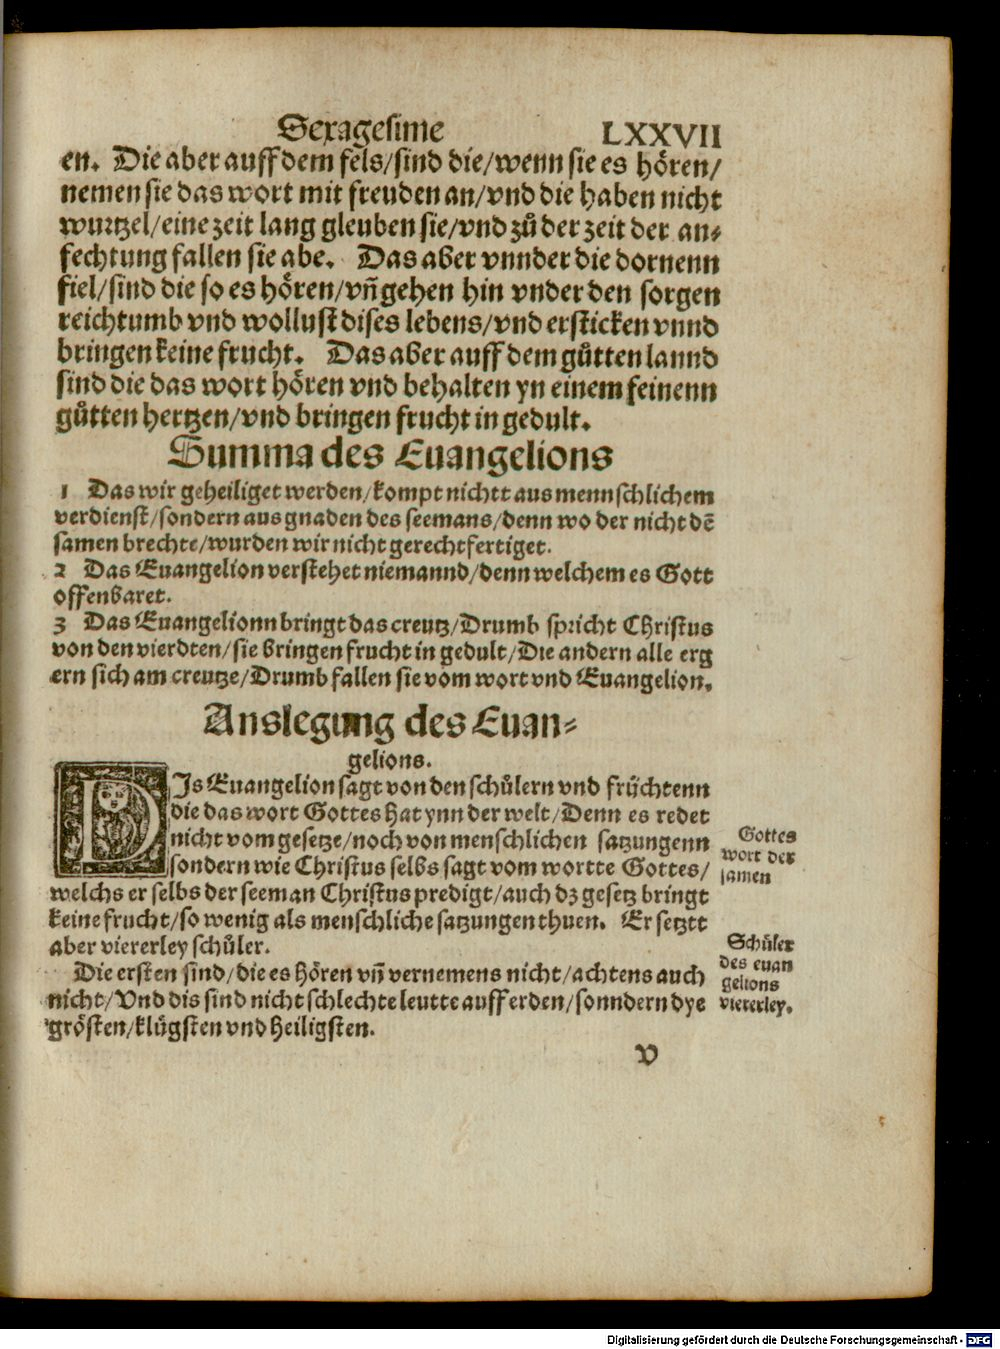 Sexagesime LXXVII
en. Die aber auff dem fels/sind die/wenn sie es hören/
nemen sie das wort mit freuden an/vnd die haben nicht
wurtzel/eine zeit lang gleuben sie/vnd zů der zeit der an⸗
fechtung fallen sie abe. Das aber vnnder die dornenn
fiel/sind die so es hören/vn̄ gehen hin vnder den sorgen
reichtumb vnd wollust dises lebens/vnd ersticken vnnd
bringen keine frucht. Das aber auff dem gůtten lannd
sind die das wort hören vnd behalten yn einem feinenn
gůtten hertzen/vnd bringen frucht in gedult.
Summa des Euangelions
1 Das wir geheiliget werden/kompt nichtt aus mennschlichem
verdienst/sondern aus gnaden des seemans/denn wo der nicht dē
samen brechte/wurden wir nicht gerechtfertiget.
2 Das Euangelion verstehet niemannd/denn welchem es Gott
offenbaret.
3 Das Euangelionn bringt das creutz/Drumb spricht Christus
von den vierdten/sie bringen frucht in gedult/Die andern alle erg
ern sich am creutze/Drumb fallen sie vom wort vnd Euangelion.
Auslegung des Euan⸗
gelions.
DIs Euangelion sagt von den schůlern vnd früchtenn
die das wort Gottes hat ynn der welt/Denn es redet
nicht vom gesetze/noch von menschlichen satzungenn
sondern wie Christus selbs sagt vom wortte Gottes/
welchs er selbs der seeman Christus predigt/auch dz gesetz bringt
keine frucht/so wenig als menschliche satzungen thuen. Er setztt
aber viererley schüler.
Gottes
wort der
samen
Die ersten sind/die es hören vn̄ vernemens nicht/achtens auch
nicht/Vnd dis sind nicht schlechte leutte auff erden/sonndern dye
grösten/klügsten vnd heiligsten.
Schüler
des euan
gelions
viererley.
V
Digitalisierung gefördert durch die Deutsche Forschungsgemeinschaft - DFG